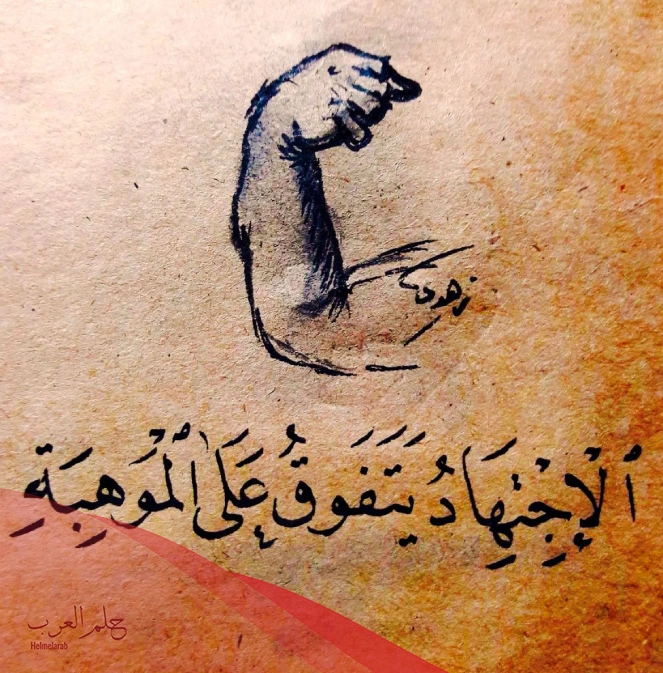 زهدي
ٱلْإِجْتِهَادُ يَتَفَوقُ عَلَى ٱلْمَوْهِبَةِ
حلم العرب
Helmelarab